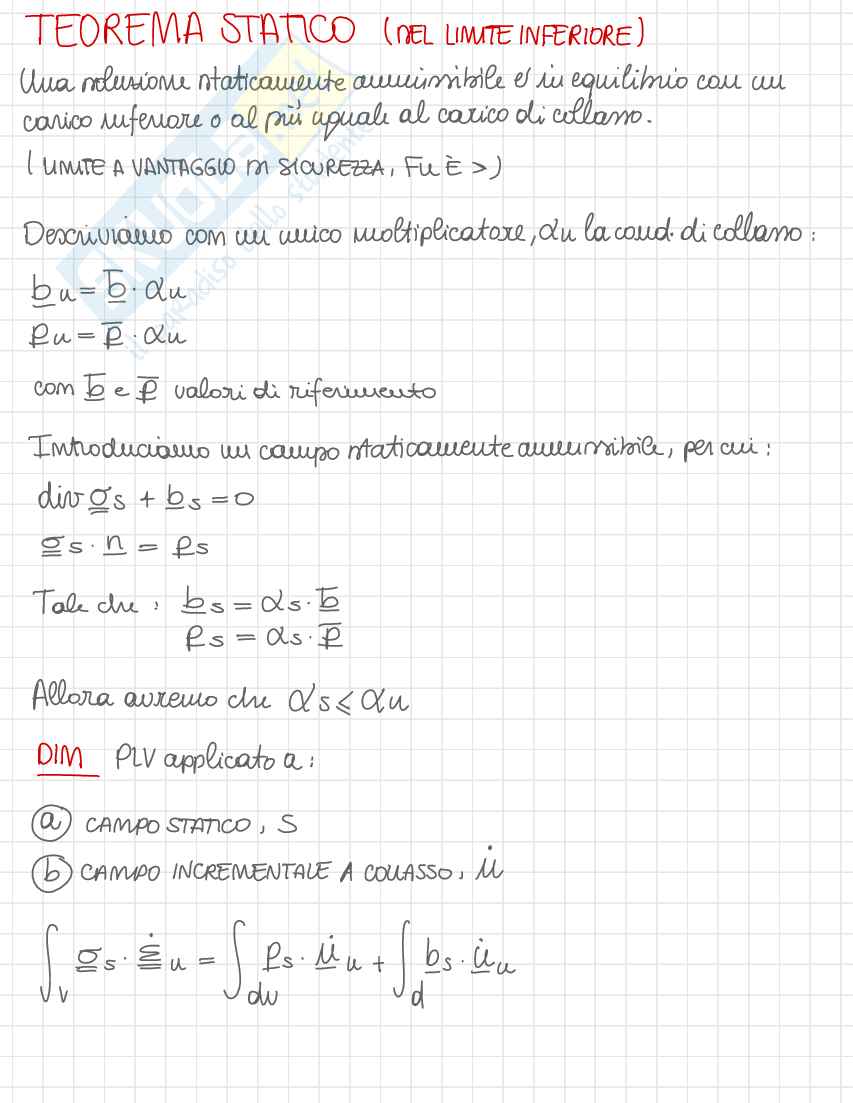 TEOREMA STATICO (DEL LIMITE INFERIORE)
Una soluzione staticamente ammissibile è in equilibrio con un
carico inferiore o al più uguale al carico di collasso.
(LIMITE A VANTAGGIO DI SICUREZZA, Fu È >)
Descriviamo con un unico moltiplicatore, αu la cond. di collasso:
b̲u = b̲̅ · αu
p̲u = p̲̅ · αu
con b̲̅ e p̲̅ valori di riferimento
Introduciamo un campo staticamente ammissibile, per cui:
div σ̳s + b̲s = 0
σ̳s · n̲ = p̲s
Tale che: b̲s = αs · b̲̅
p̲s = αs · p̲̅
Allora avremo che αs ⩽ αu
DIM PLV applicato a:
ⓐ CAMPO STATICO, S
ⓑ CAMPO INCREMENTALE A COLLASSO, u̇
∫v σ̳s · ε̳̇u = ∫dv p̲s · u̲̇u + ∫d b̲s · u̲̇u
SKUOLA.net
il paradiso dello studente